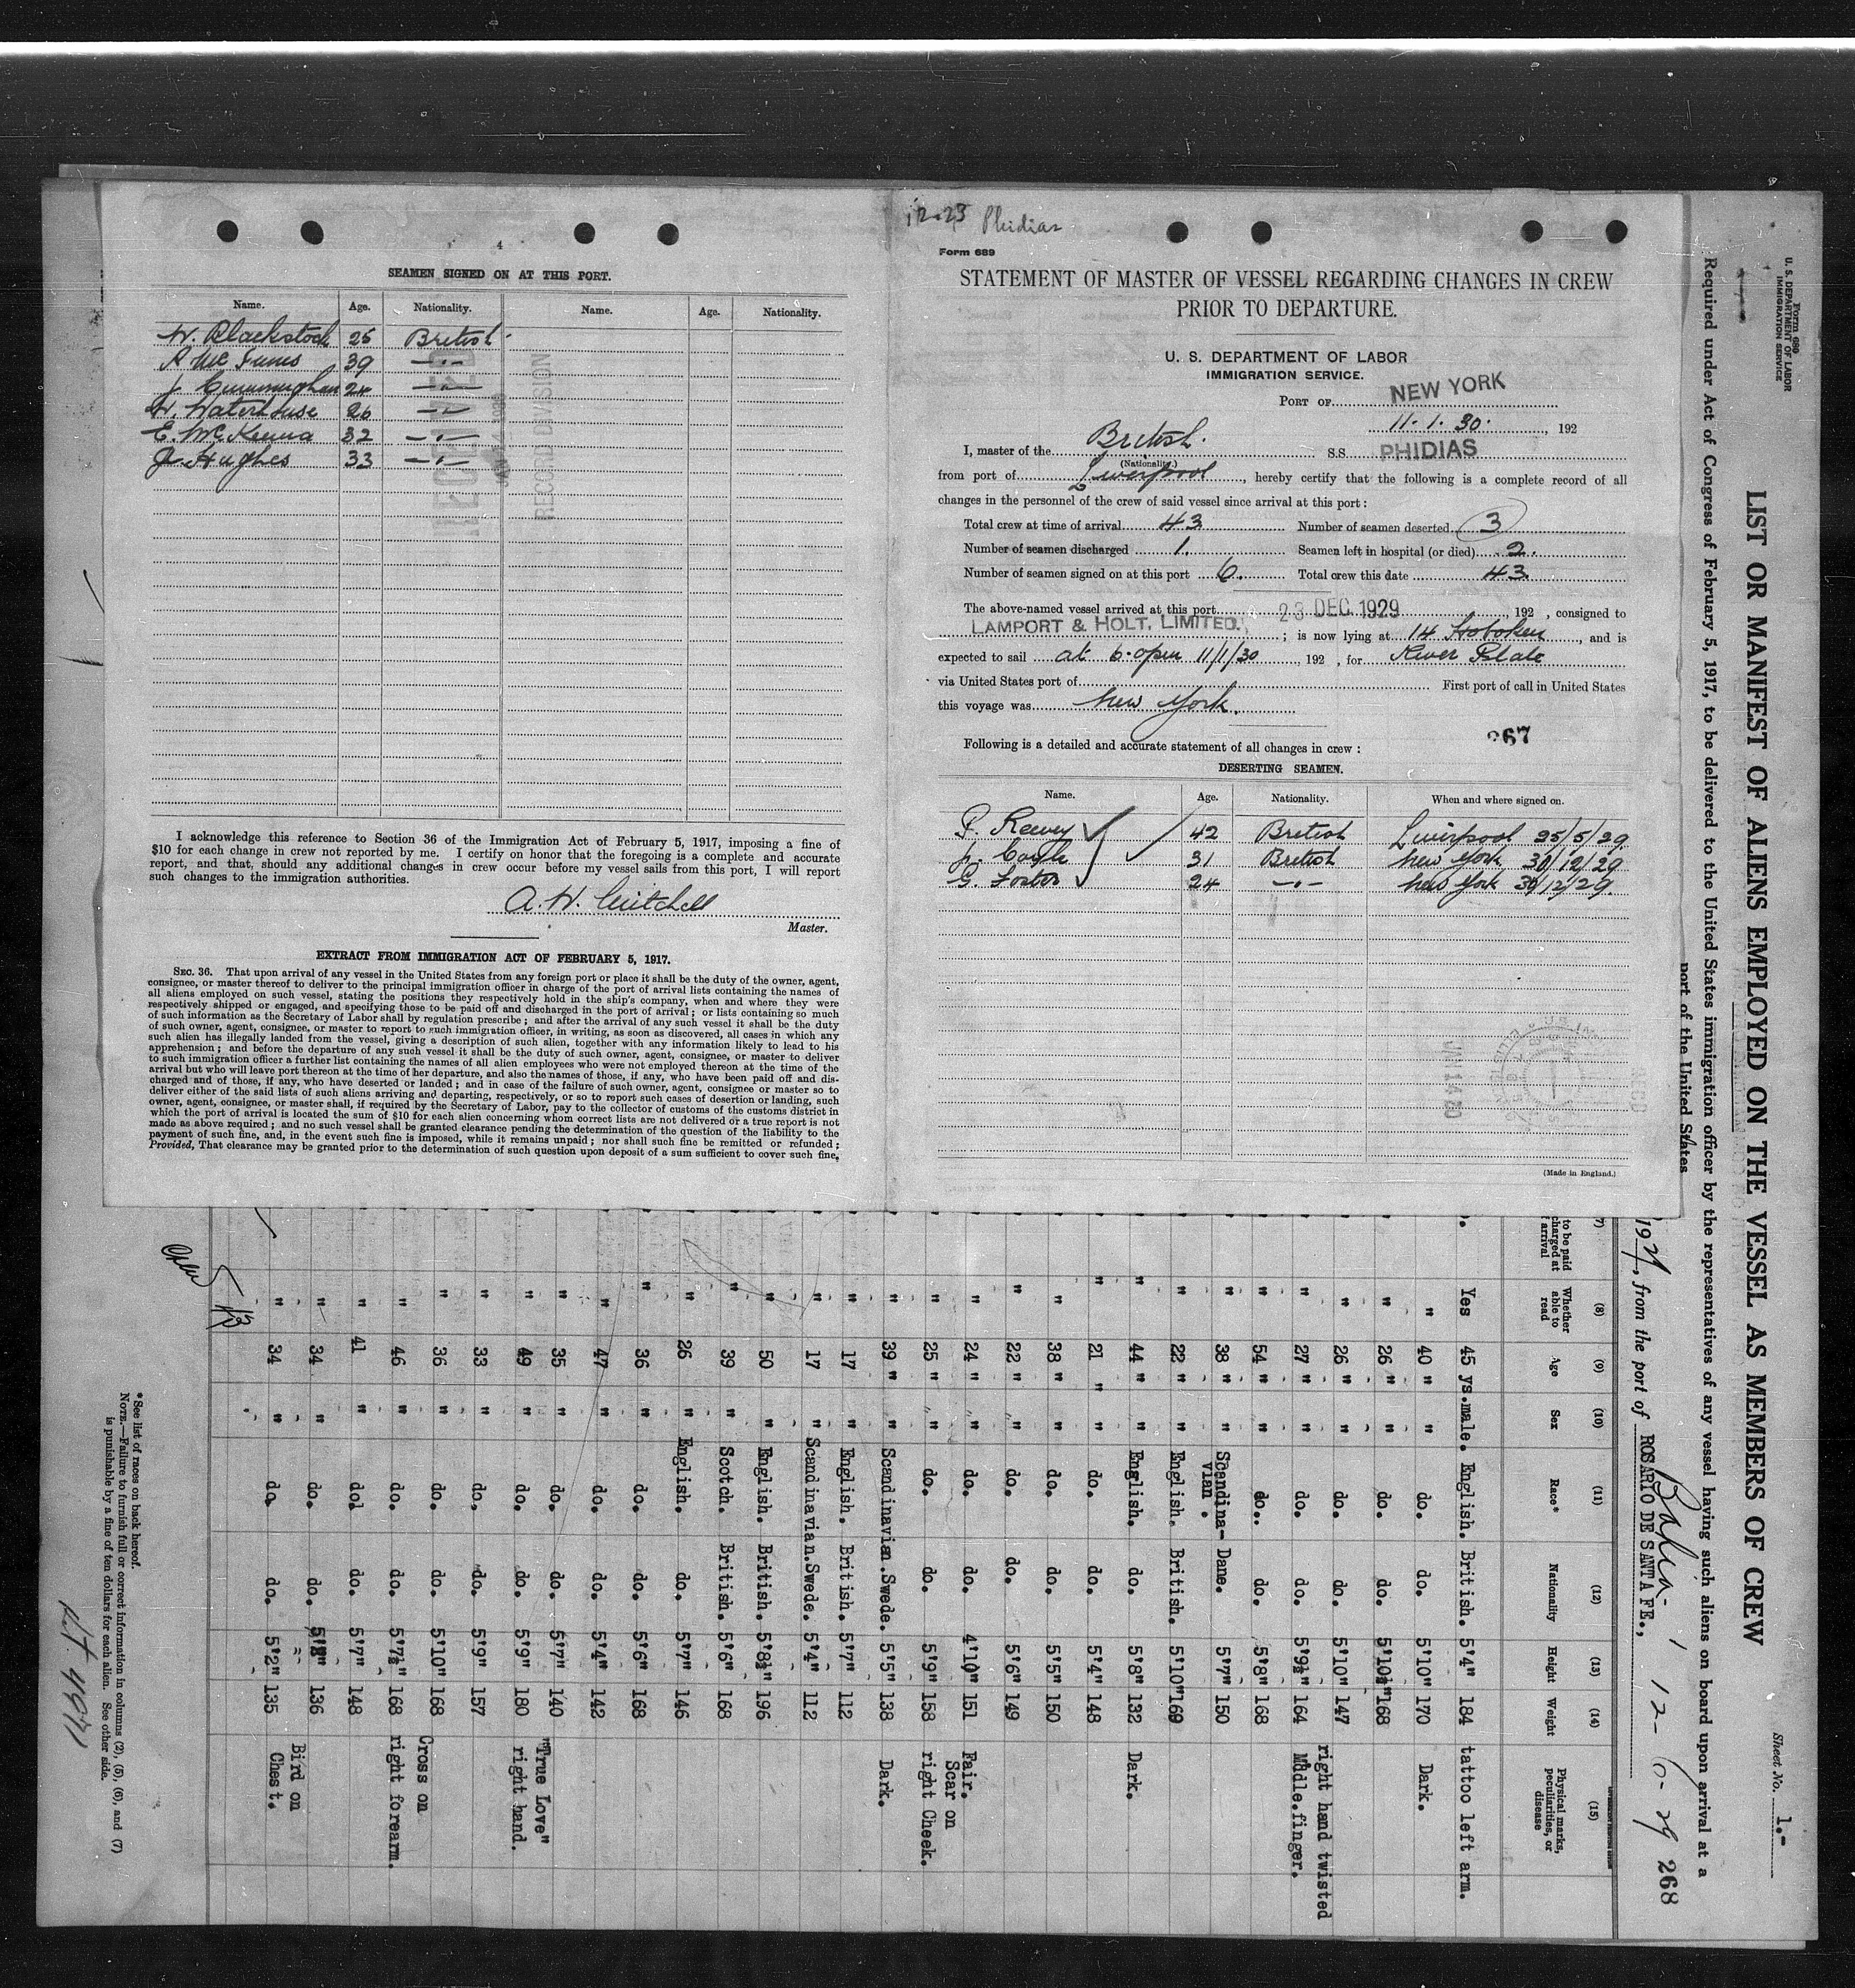 4
SEAMEN SIGNED ON AT THIS PORT.
Name. Age. Nationality. Name. Age. Nationality.
W. Blackstock 25 British
A Mc 39 —"—
J Cunningham 24 —"—
W. Waterhouse 26 —"—
E. McKenna 32 —"—
J. Hughes 33 —"—
RECORD DIVISION
I acknowledge this reference to Section 36 of the Immigration Act of February 5, 1917, imposing a fine of
$10 for each change in crew not reported by me. I certify on honor that the foregoing is a complete and accurate
report, and that, should any additional changes in crew occur before my vessel sails from this port, I will report
such changes to the immigration authorities.
A. W. Mitchell
Master.
EXTRACT FROM IMMIGRATION ACT OF FEBRUARY 5, 1917.
SEC. 36. That upon arrival of any vessel in the United States from any foreign port or place it shall be the duty of the owner, agent,
consignee, or master thereof to deliver to the principal immigration officer in charge of the port of arrival lists containing the names of
all aliens employed on such vessel, stating the positions they respectively hold in the ship's company, when and where they were
respectively shipped or engaged, and specifying those to be paid off and discharged in the port of arrival; or lists containing so much
of such information as the Secretary of Labor shall by regulation prescribe; and after the arrival of any such vessel it shall be the duty
of such owner, agent, consignee, or master to report to such immigration officer, in writing, as soon as discovered, all cases in which any
such alien has illegally landed from the vessel, giving a description of such alien, together with any information likely to lead to his
apprehension; and before the departure of any such vessel it shall be the duty of such owner, agent, consignee, or master to deliver
to such immigration officer a further list containing the names of all alien employees who were not employed thereon at the time of the
arrival but who will leave port thereon at the time of her departure, and also the names of those, if any, who have been paid off and dis-
charged and of those, if any, who have deserted or landed; and in case of the failure of such owner, agent, consignee or master so to
deliver either of the said lists of such aliens arriving and departing, respectively, or so to report such cases of desertion or landing, such
owner, agent, consignee, or master shall, if required by the Secretary of Labor, pay to the collector of customs of the customs district in
which the port of arrival is located the sum of $10 for each alien concerning whom correct lists are not delivered or a true report is not
made as above required; and no such vessel shall be granted clearance pending the determination of the question of the liability to the
payment of such fine, and, in the event such fine is imposed, while it remains unpaid; nor shall such fine be remitted or refunded;
Provided, That clearance may be granted prior to the determination of such question upon deposit of a sum sufficient to cover such fine,
12-23 Phidias
Form 689
STATEMENT OF MASTER OF VESSEL REGARDING CHANGES IN CREW
PRIOR TO DEPARTURE.
U. S. DEPARTMENT OF LABOR
IMMIGRATION SERVICE.
PORT OF NEW YORK
11.1.30. , 192
I, master of the British. S.S. PHIDIAS
(Nationality.)
from port of Liverpool , hereby certify that the following is a complete record of all
changes in the personnel of the crew of said vessel since arrival at this port:
Total crew at time of arrival 43 Number of seamen deserted 3
Number of seamen discharged 1. Seamen left in hospital (or died) 2.
Number of seamen signed on at this port 6. Total crew this date 43
The above-named vessel arrived at this port 23 DEC 1929 , 192 , consigned to
LAMPORT & HOLT, LIMITED. ; is now lying at 14 Hoboken , and is
expected to sail at 6.0pm 11/1/30 , 192 , for River Plate
via United States port of First port of call in United States
this voyage was New York.
267
Following is a detailed and accurate statement of all changes in crew:
DESERTING SEAMEN.
Name. Age. Nationality. When and where signed on.
P. 42 British Liverpool 25/5/29
J. 31 British New York 30/12/29
G. Foster 24 —"— New York 30/12/29
(Made in England.)
Form 680
U. S. DEPARTMENT OF LABOR
IMMIGRATION SERVICE
Sheet No. 1.-
LIST OR MANIFEST OF ALIENS EMPLOYED ON THE VESSEL AS MEMBERS OF CREW
Required under Act of Congress of February 5, 1917, to be delivered to the United States immigration officer by the representatives of any vessel having such aliens on board upon arrival at a
port of the United States
Bahia - 12-6-29 268
1929, from the port of ROSARIO DE SANTA FE.,
(7) (8) (9) (10) (11) (12) (13) (14) (15)
to be paid charged at arrival Whether able to read Age Sex Race* Nationality Height Weight Physical marks, peculiarities, or disease
Yes 45 ys. male. English. British. 5'4" 184 tattoo left arm.
" 40 " " do. do. 5'10" 170 Dark.
" 26 " " do. do. 5'10½" 168
" 26 " " do. do. 5'10" 147 right hand twisted
" 27 " " do. do. 5'9½" 164 Middle.finger.
" 54 " " do.. do. 5'8" 168
" 38 " " Scandina- Dane. 5'7" 150
vian.
" 22 " " English. British. 5'10" 169
" 44 " " English. do. 5'8" 132 Dark.
" 21 " " do. do. 5'4" 148
" 38 " " do. do. 5'5" 150
" 22 " " do. do. 5'6" 149
" 24 " " do. do. 4'10" 151 Fair.
Scar on
" 25 " " do. do. 5'9" 158 right Cheek.
" 39 " " Scandinavian. Swede. 5'5" 138 Dark.
" 17 " English. British. 5'7" 112
" 17 " Scandinavian. Swede. 5'4" 112
" 50 " English. British. 5'8½" 196
" 39 " Scotch. British. 5'6" 168
" 26 " English. do. 5'7" 146
" 36 " do. do. 5'6" 168
" 47 " do. do. 5'4" 142
" 35 " do. do. 5'7" 140 "True Love"
" 49 " do. do. 5'9" 180 right hand.
" 33 " do. do. 5'9" 157
" 36 " do. do. 5'10" 168 Cross on
" 46 " do. do. 5'7½" 168 right forearm.
" 41 " do. do. 5'7" 148
" 34 " do. do. 136 Bird on
" 34 " do. do. 5'2" 135 Chest.
*See list of races on back hereof.
NOTE.—Failure to furnish full or correct information in columns (2), (5), (6), and (7)
is punishable by a fine of ten dollars for each alien. See other side.